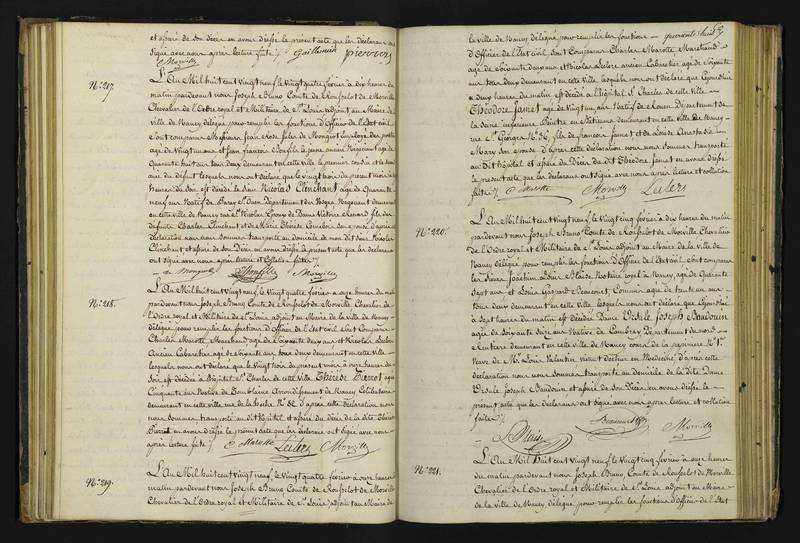 et assuré de son décès en avons dressé le présent acte que les déclarans ont
signé avec nous après lecture faite ./. Gaillemin pierron
Morville
N.º 217.
L'An Mil huit cent vingt neuf, le vingt quatre février à dix heures du
matin pardevant nous Joseph Bruno Comte de Rouffelot de Morville
Chevalier de l'Ordre royal et Militaire de S.t Louis adjoint au Maire de la
ville de Nancy délégué pour remplir les fonctions d'Officier de l'Etat civil
sont comparus Messieurs Jean Rose Jules de Mongiot Employé des postes
agé de vingt un ans et Jean françois Bonfils le jeune ancien Négociant agé de
Quarante huit ans tous deux demeurant en cette ville le premier cousin et le second
ami du défunt lesquels nous ont déclaré que le vingt trois du présent mois à
heures du soir est décédé le Sieur Nicolas Clinchant agé de Quarante
neuf ans Natif de Département des Vosges Négociant demeurant
en cette ville de Nancy rue S.t Nicolas Epoux de Dame Victoire Renard fils des
défunts Charles Clinchant et de Marie Thérèse sa épouse d'après cette
déclaration nous nous sommes transporté au domicile de mon dit Sieur Nicolas
Clinchant et assuré de son décès en avons dressé le présent acte que les déclarans
ont signé avec nous après lecture et collation faite ./.
de mongiot Bonfils Morville
N.º 218.
L'An Mil huit cent vingt neuf, le vingt quatre février à onze heures du matin
pardevant nous Joseph Bruno Comte de Rouffelot de Morville Chevalier de
l'Ordre royal et Militaire de S.t Louis adjoint au Maire de la ville de Nancy
délégué pour remplir les fonctions d'Officier de l'Etat civil sont comparus
Charles Marotte, Marchand agé de soixante deux ans et Nicolas Leclerc
Ancien Cabaretier agé de soixante six ans tous deux demeurant en cette ville
lesquels nous ont déclaré que le vingt trois du présent mois à onze heures du
soir est décédée à l'hôpital S.t Charles de cette ville Thérèse Pierrot agée
Cinquante ans Native de Tomblaine Arrondissement de Nancy Célibataire
demeurant en cette ville rue de la hache N.º 82. d'après cette déclaration nous
nous sommes transporté au dit hôpital et assuré du décès de la dite Thérèse
Pierrot en avons dressé le présent acte que les déclarans ont signé avec nous
après lecture faite ./. C Marotte Leclerc Morville
N.º 219.
L'An Mil huit cent vingt neuf, le vingt quatre février à onze heures du
matin pardevant nous Joseph Bruno Comte de Rouffelot de Morville
Chevalier de l'Ordre royal et Militaire de S.t Louis adjoint au Maire de
la ville de Nancy délégué pour remplir les fonctions quarante huit
d'Officier de l'Etat civil sont comparus Charles Marotte Marchand
agé de soixante deux ans et Nicolas Leclerc ancien Cabaretier agé de soixante
six ans tous deux demeurant en cette ville lesquels nous ont déclaré que Cejourd'hui
à deux heures du matin est décédé à l'hôpital S.t Charles de cette ville
Théodore Jamet agé de vingt un ans Natif de Rouen Département de
la Seine inférieure Peintre en bâtimens demeurant en cette ville de Nancy
rue S.t Georges N.º 36, fils de françois Jamet et de Louise Anastasie
Mary son épouse d'après cette déclaration nous nous sommes transporté
au Dit hôpital et assuré du Décès du dit Théodore Jamet en avons dressé
le présent acte que les déclarans ont signé avec nous après lecture et collation
faite ./. C Marotte Morville Leclerc
N.º 220.
L'An Mil huit cent vingt neuf, le vingt cinq février à dix heures du matin
pardevant nous Joseph Bruno Comte de Rouffelot de Morville Chevalier
de l'Ordre royal et Militaire de S.t Louis adjoint au Maire de la ville de
Nancy délégué pour remplir les fonctions d'Officier de l'Etat civil sont comparus
les Sieurs Joachim Blaise Notaire royal à Nancy, agé de Quarante
Sept ans et Louis Gaspard Beaucourt, Commis agé de trente un ans
tous deux demeurant en cette ville lesquels nous ont déclaré que Cejourd'hui
à sept heures du matin est décédée Dame Ursule Joseph Baudouin
agée de Soixante seize ans Native de Cambray Département du nord
Rentière demeurant en cette ville de Nancy cours de la pepinière N.º 1.er
Veuve de M.r Louis Valentin, vivant docteur en Medecine, d'après cette
déclaration nous nous sommes transporté au domicile de la dite Dame
Ursule Joseph Baudouin, et assuré de son Décès, en avons dressé le
présent acte que les déclarans ont signé avec nous après lecture et collation
faites ./. Beaucourt Morville
Blaise
N.º 221.
L'An Mil huit cent vingt neuf le vingt cinq février à onze heures
du matin pardevant nous Joseph Bruno Comte de Rouffelot de Morville
Chevalier de l'Ordre royal et Militaire de S.t Louis adjoint au Maire
de la ville de Nancy délégué pour remplir les fonctions d'Officier de l'Etat